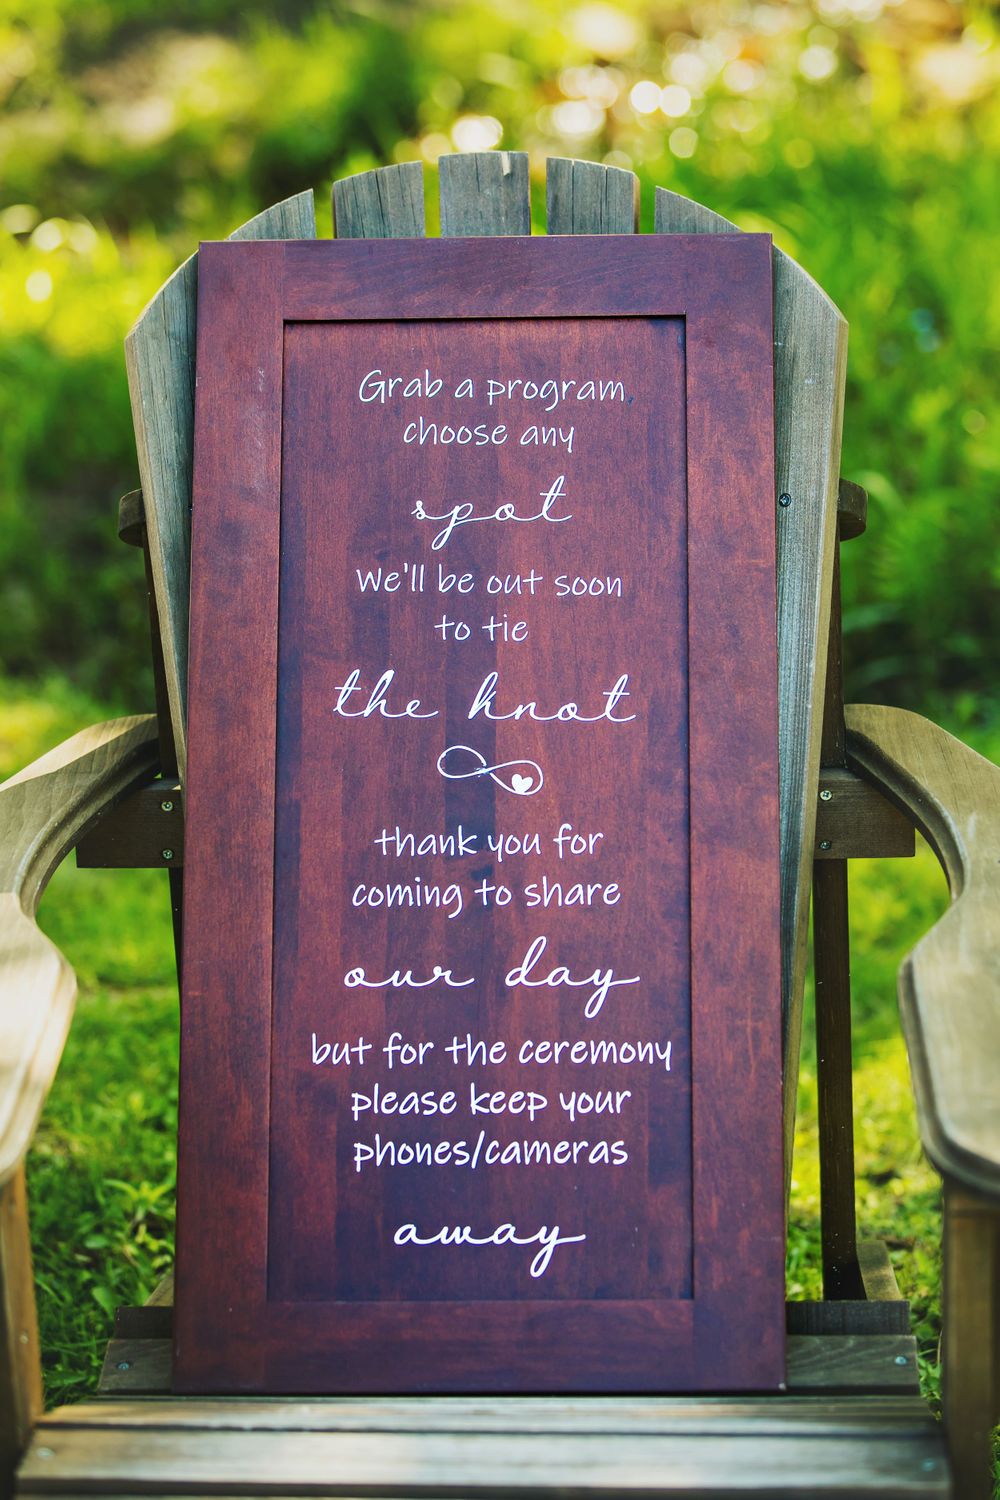 Grab a program,
choose any
spot
we'll be out soon
to tie
the knot
thank you for
coming to share
our day
but for the ceremony
please keep your
phones/cameras
away